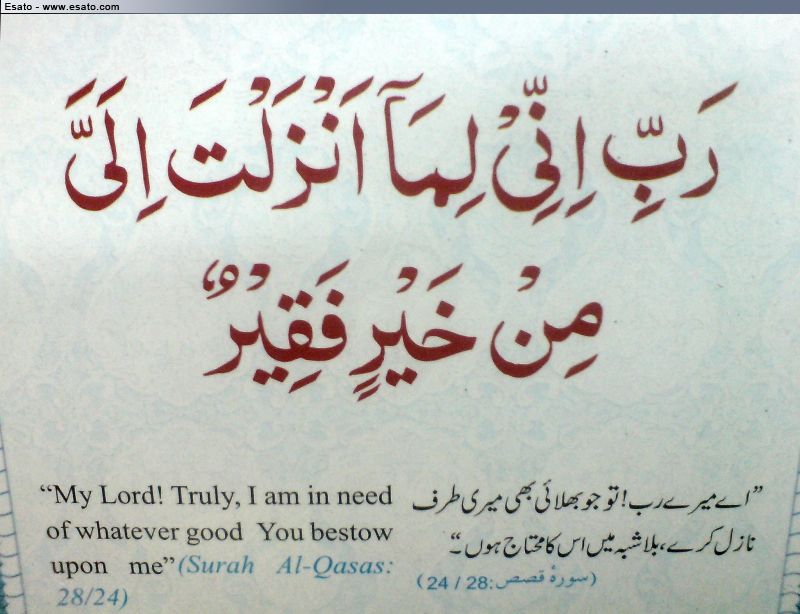 Esato - www.esato.com
رَبِّ اِنِّیْ لِمَآ اَنْزَلْتَ اِلَیَّ
مِنْ خَیْرٍ فَقِیْرٌ
“My Lord! Truly, I am in need
of whatever good You bestow
upon me” (Surah Al-Qasas:
28/24)
”اے میرے رب! تو جو بھلائی بھی میری طرف
نازل کرے، بلاشبہ میں اس کا محتاج ہوں۔“
(سورۂ قصص:28 / 24)